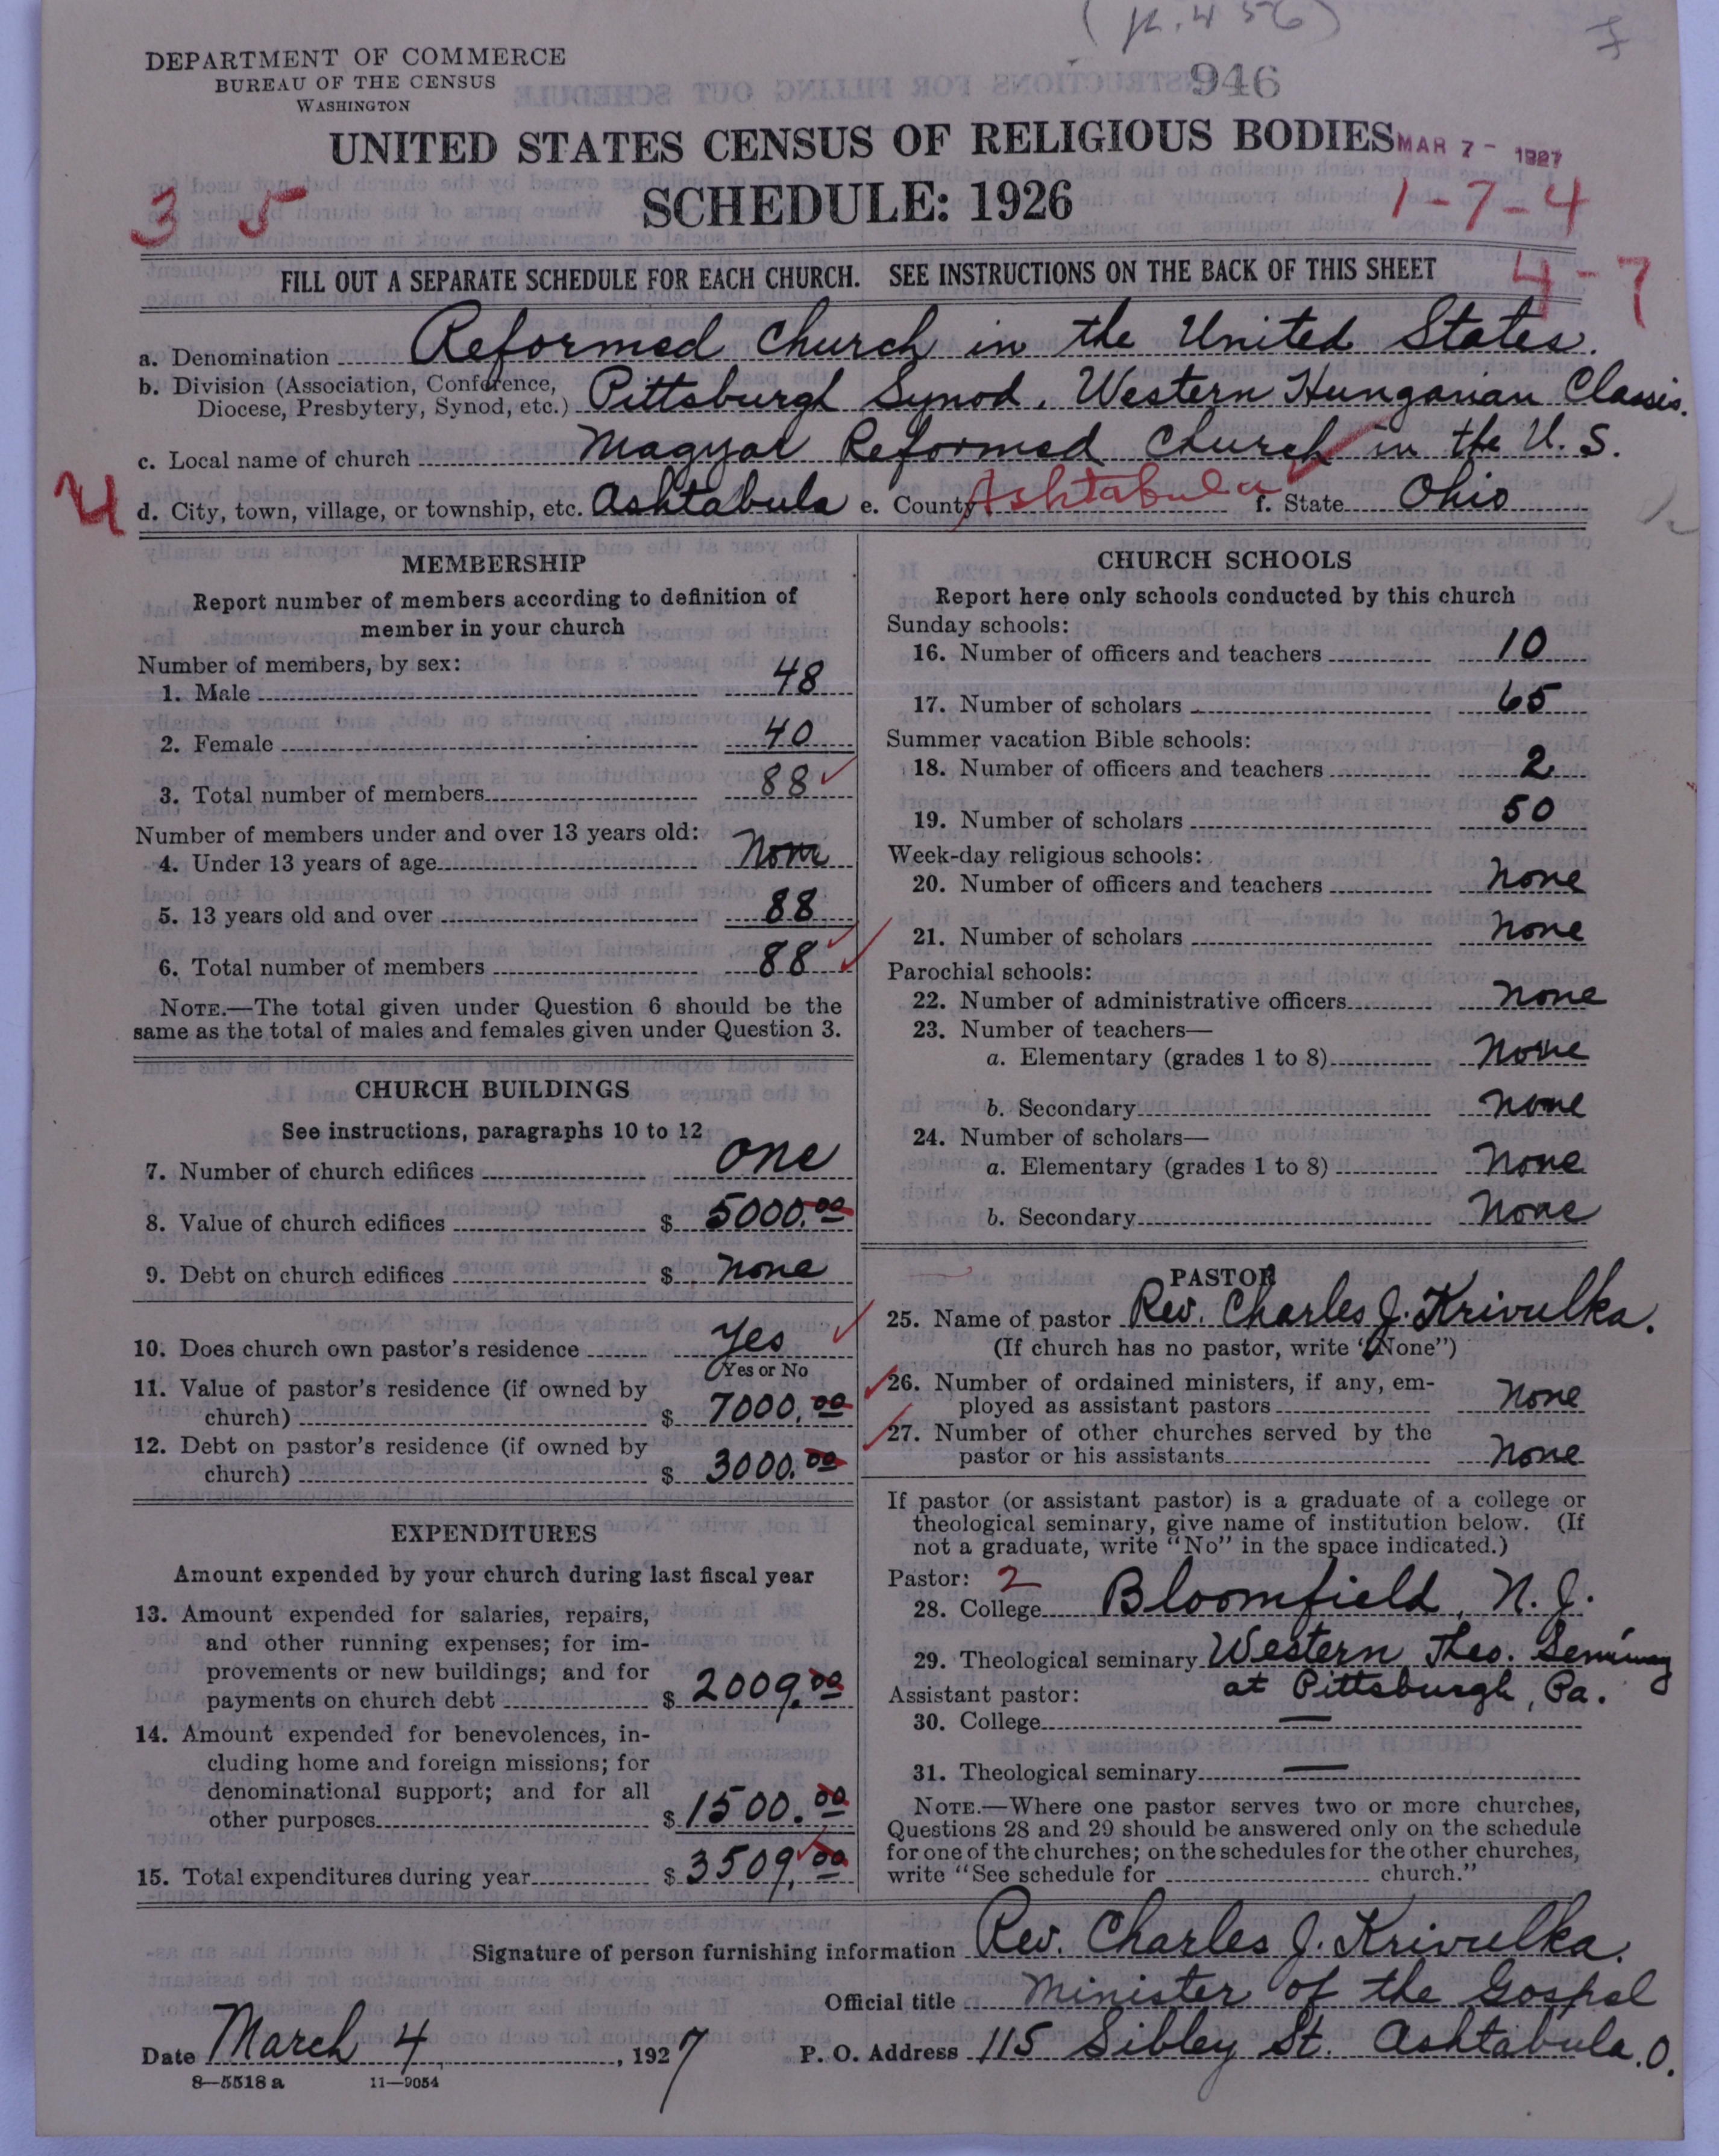 (p. 456)
DEPARTMENT OF COMMERCE
BUREAU OF THE CENSUS
WASHINGTON
946
UNITED STATES CENSUS OF RELIGIOUS BODIES
MAR 7 - 1927
SCHEDULE: 1926
3 5
1-7-4
FILL OUT A SEPARATE SCHEDULE FOR EACH CHURCH. SEE INSTRUCTIONS ON THE BACK OF THIS SHEET
4-7
a. Denomination Reformed Church in the United States.
b. Division (Association, Conference,
Diocese, Presbytery, Synod, etc.) Pittsburgh Synod. Western Hungarian Classis.
c. Local name of church Magyar Reformed Church in the U. S.
4
d. City, town, village, or township, etc. Ashtabula e. County Ashtabula f. State Ohio
MEMBERSHIP
Report number of members according to definition of
member in your church
Number of members, by sex:
1. Male 48
2. Female 40
3. Total number of members 88
Number of members under and over 13 years old:
4. Under 13 years of age None
5. 13 years old and over 88
6. Total number of members 88
NOTE.—The total given under Question 6 should be the
same as the total of males and females given under Question 3.
CHURCH BUILDINGS
See instructions, paragraphs 10 to 12
7. Number of church edifices One
8. Value of church edifices $ 5000.00
9. Debt on church edifices $ None
10. Does church own pastor's residence Yes
(Yes or No
11. Value of pastor's residence (if owned by
church) $ 7000.00
12. Debt on pastor's residence (if owned by
church) $ 3000.00
EXPENDITURES
Amount expended by your church during last fiscal year
13. Amount expended for salaries, repairs,
and other running expenses; for im-
provements or new buildings; and for
payments on church debt $ 2009.00
14. Amount expended for benevolences, in-
cluding home and foreign missions; for
denominational support; and for all
other purposes $ 1500.00
15. Total expenditures during year $ 3509.00
CHURCH SCHOOLS
Report here only schools conducted by this church
Sunday schools:
16. Number of officers and teachers 10
17. Number of scholars 65
Summer vacation Bible schools:
18. Number of officers and teachers 2
19. Number of scholars 50
Week-day religious schools:
20. Number of officers and teachers None
21. Number of scholars None
Parochial schools:
22. Number of administrative officers None
23. Number of teachers—
a. Elementary (grades 1 to 8) None
b. Secondary None
24. Number of scholars—
a. Elementary (grades 1 to 8) None
b. Secondary None
PASTOR
25. Name of pastor Rev. Charles J. Krivulka.
(If church has no pastor, write "None")
26. Number of ordained ministers, if any, em-
ployed as assistant pastors None
27. Number of other churches served by the
pastor or his assistants None
If pastor (or assistant pastor) is a graduate of a college or
theological seminary, give name of institution below. (If
not a graduate, write "No" in the space indicated.)
Pastor: 2
28. College Bloomfield, N. J.
29. Theological seminary Western Theo. Seminary
at Pittsburgh, Pa.
Assistant pastor:
30. College —
31. Theological seminary —
NOTE.—Where one pastor serves two or more churches,
Questions 28 and 29 should be answered only on the schedule
for one of the churches; on the schedules for the other churches,
write "See schedule for church."
Signature of person furnishing information Rev. Charles J. Krivulka.
Official title Minister of the Gospel
Date March 4, 1927
P. O. Address 115 Sibley St. Ashtabula. O.
8—5518 a 11—9054